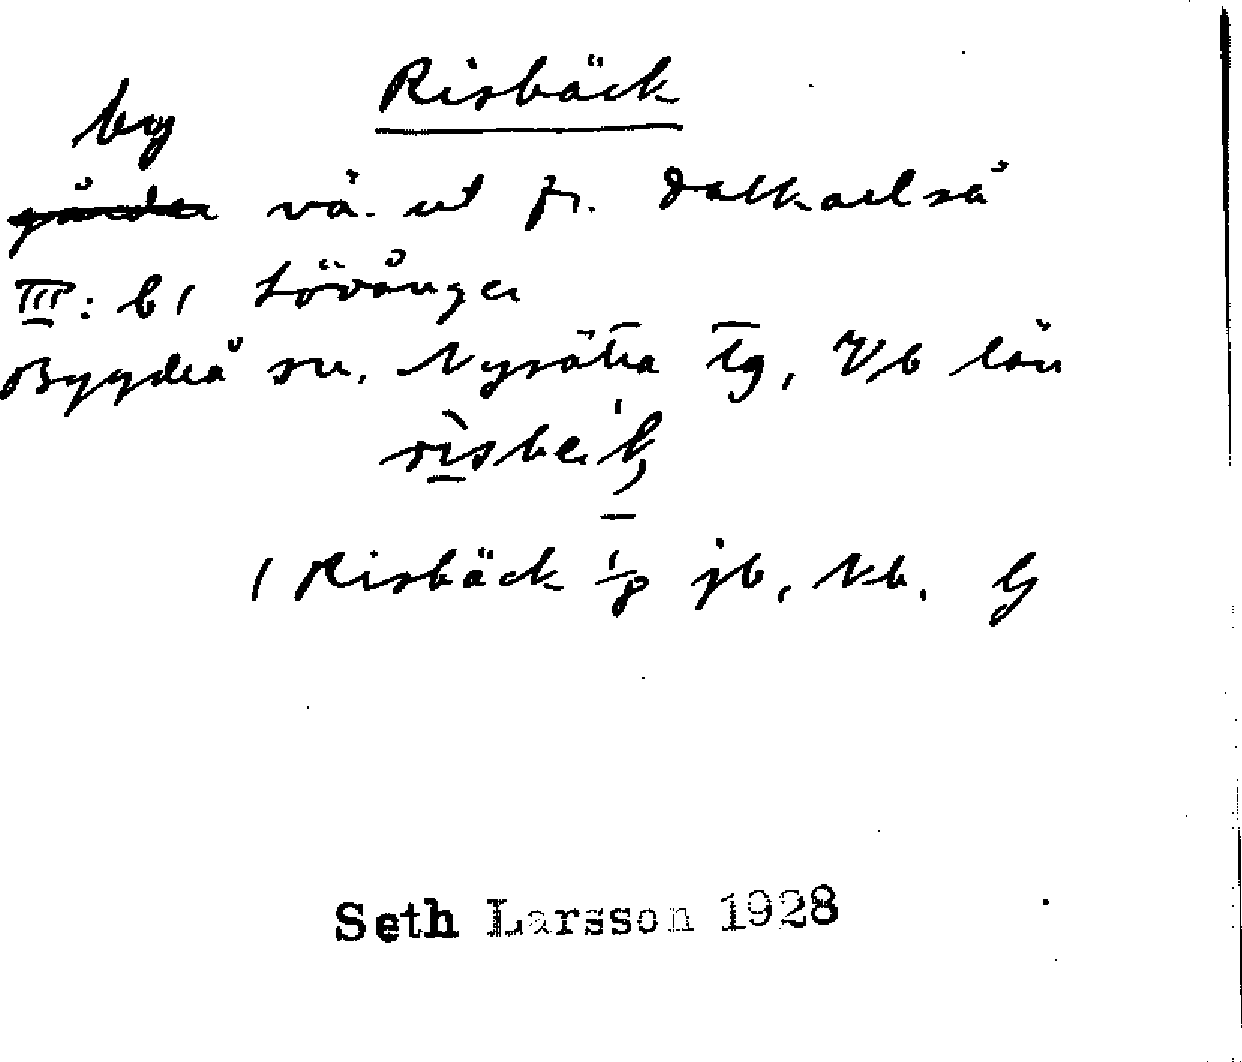 Risbäck
by
gårdar vä. ut fr. Dalkarlså
III: b1 Lövånger
Bygdeå sn. Nysätra tg, Vb län
Risbäck jb, kb. G
Seth Larsson 1928